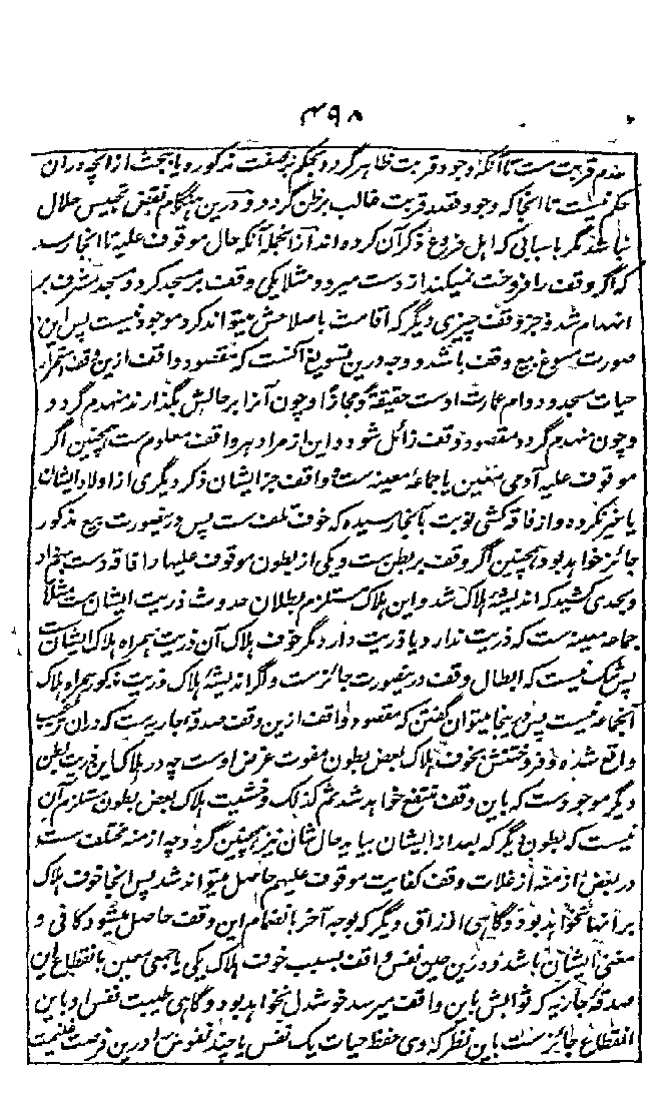 ۴۹۸
عدم قربت ست تا آنکه وجود قربت ظاهر گردد و حکم بر صفت مذکوره یا بحث از انچه دران
حکم نیست تا انجا که وجود قصد قربت غالب بر ظن گردد و درین هنگام نقض تحبیس حلال
نباشد مگر باسبابی که اهل فروع ذکر آن کرده اند از انجمله آنکه حال موقوف علیه تا انجا رسد
که اگر وقف را فروخت نمیکند از دست میرود مثلا یکی وقف بر مسجد کرد و مسجد مشرف بر
انهدام شد و جز وقف چیزی دیگر که اقامت با صلاحش میتواند کرد موجود نیست پس این
صورت مسوغ بیع وقف باشد و وجه درین تسویغ آنست که مقصود واقف ازین وقف استمرار
حیات مسجد و دوام عمارت اوست حقیقة و مجازا و چون آنرا بر حالش بگذارند منهدم گردد
و چون منهدم گردد مقصود وقف زائل شود و این از مراد هر واقف معلوم ست همچنین اگر
موقوف علیه آدمی معین یا جماعهٔ معینه ست و واقف جز ایشان ذکر دیگری از اولاد ایشان
یا غیر نکرده و از فاقه کشی نوبت بانجا رسیده که خوف تلف ست پس درینصورت بیع مذکور
جائز خواهد بود همچنین اگر وقف بر بطن ست و یکی از بطون موقوف علیها را فاقه دست بهم داد
و بحدی کشید که اندیشهٔ هلاک شد و این هلاک مستلزم بطلان حدوث ذریت ایشان ست مثلا
جماعه معینه ست که ذریت ندارد یا ذریت دارد مگر خوف هلاک آن ذریت همراه هلاک ایشان ست
پس شک نیست که ابطال وقف درینصورت جائز ست و اگر اندیشهٔ هلاک ذریت مذکور همراه هلاک
آنجماعه نیست پس درینجا میتوان گفتن که مقصود واقف ازین وقف صدقهٔ جاریه ست که دران
واقع شده و فروختنش بخوف هلاک بعض بطون مفوت غرض اوست چه در هلاک این ذریت بطن
دیگر موجود ست که باین وقف منتفع خواهد شد ثم کذلک و خشیت هلاک بعض بطون مستلزم آن
نیست که بطون دیگر که بعد از ایشان بیاید حال شان نیز همچنین گردد چه ازمنه مختلف ست
در بعض ازمنه از غلات وقف کفایت موقوف علیهم حاصل میتواند شد پس انجا خوف هلاک
بر آنها نخواهد بود و گاهی ارزاق دیگر که بوجه آخر بانضمام این وقف حاصل میشود کافی و
مغنی ایشان باشد و درین حین نفس واقف بسبب خوف هلاک یکی یا جمعی معین بانقطاع این
صدقهٔ جاریه که ثوابش باین واقف میرسد خوشدل نخواهد بود و گاهی طیبت نفس او باین
انقطاع جائز ست باین نظر که وی حفظ حیات یک نفس یا چند نفوس را درین فرصت غنیمت